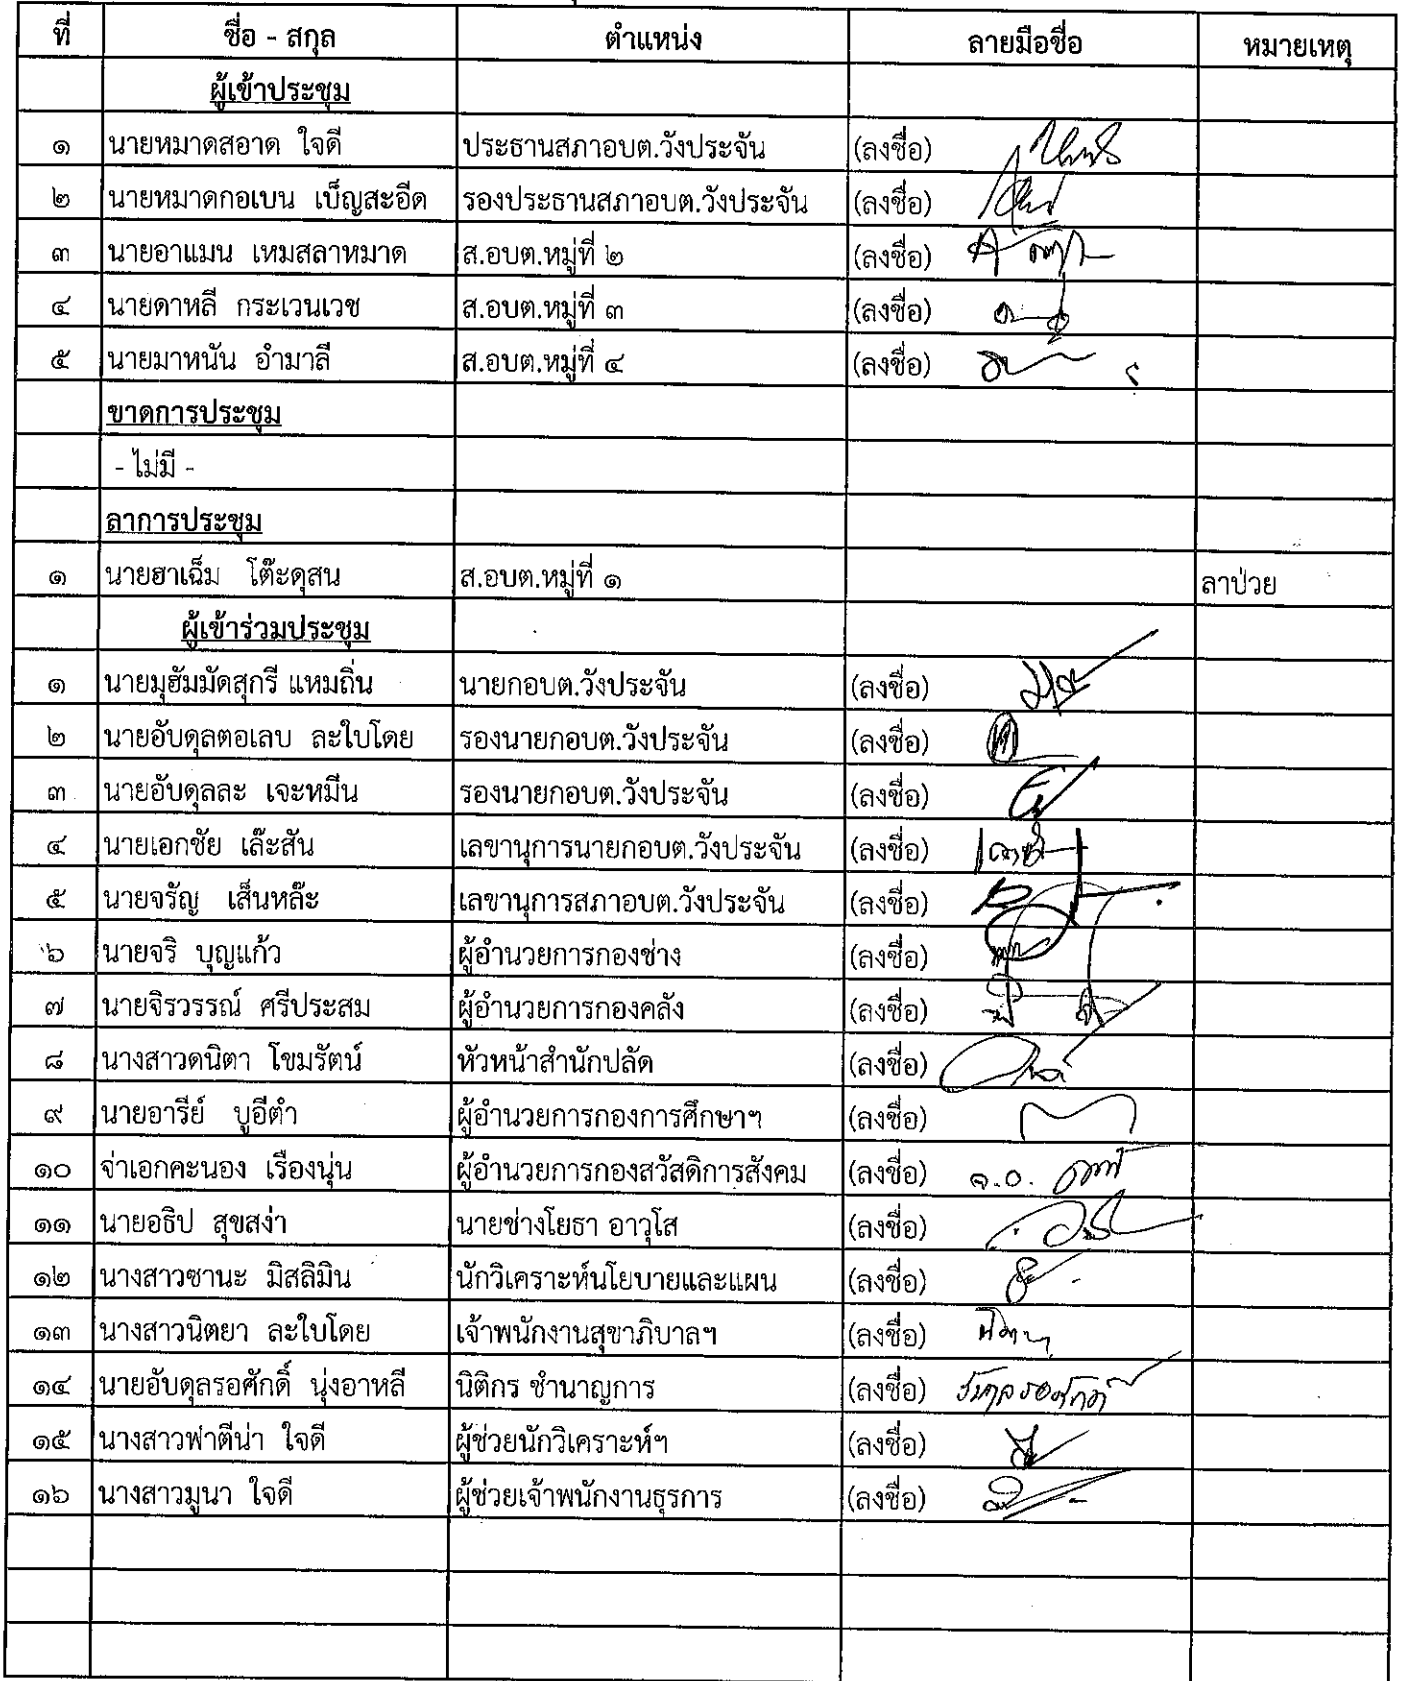 ที่ ชื่อ - สกุล ตำแหน่ง ลายมือชื่อ หมายเหตุ
ผู้เข้าประชุม
๑ นายหมาดสอาด ใจดี ประธานสภาอบต.วังประจัน (ลงชื่อ)
๒ นายหมาดกอเบน เบ็ญสะอีด รองประธานสภาอบต.วังประจัน (ลงชื่อ)
๓ นายอาแมน เหมสลาหมาด ส.อบต.หมู่ที่ ๒ (ลงชื่อ)
๔ นายดาหลี กระเวนเวช ส.อบต.หมู่ที่ ๓ (ลงชื่อ)
๕ นายมาหนัน อำมาลี ส.อบต.หมู่ที่ ๔ (ลงชื่อ)
ขาดการประชุม
- ไม่มี -
ลาการประชุม
๑ นายฮาเฉ็ม โต๊ะดุสน ส.อบต.หมู่ที่ ๑ ลาป่วย
ผู้เข้าร่วมประชุม
๑ นายมุฮัมมัดสุกรี แหมถิ่น นายกอบต.วังประจัน (ลงชื่อ)
๒ นายอับดุลตอเลบ ละใบโดย รองนายกอบต.วังประจัน (ลงชื่อ)
๓ นายอับดุลละ เจะหมีน รองนายกอบต.วังประจัน (ลงชื่อ)
๔ นายเอกชัย เล๊ะสัน เลขานุการนายกอบต.วังประจัน (ลงชื่อ)
๕ นายจรัญ เส็นหล๊ะ เลขานุการสภาอบต.วังประจัน (ลงชื่อ)
๖ นายจริ บุญแก้ว ผู้อำนวยการกองช่าง (ลงชื่อ)
๗ นายจิรวรรณ์ ศรีประสม ผู้อำนวยการกองคลัง (ลงชื่อ)
๘ นางสาวดนิตา โขมรัตน์ หัวหน้าสำนักปลัด (ลงชื่อ)
๙ นายอารีย์ บูอีตำ ผู้อำนวยการกองการศึกษาฯ (ลงชื่อ)
๑๐ จ่าเอกคะนอง เรืองนุ่น ผู้อำนวยการกองสวัสดิการสังคม (ลงชื่อ) จ.อ.
๑๑ นายอธิป สุขสง่า นายช่างโยธา อาวุโส (ลงชื่อ)
๑๒ นางสาวซานะ มิสลิมิน นักวิเคราะห์นโยบายและแผน (ลงชื่อ)
๑๓ นางสาวนิตยา ละใบโดย เจ้าพนักงานสุขาภิบาลฯ (ลงชื่อ) นิตยา
๑๔ นายอับดุลรอศักดิ์ นุ่งอาหลี นิติกร ชำนาญการ (ลงชื่อ) อับดุลรอศักดิ์
๑๕ นางสาวฟาตีน่า ใจดี ผู้ช่วยนักวิเคราะห์ฯ (ลงชื่อ)
๑๖ นางสาวมูนา ใจดี ผู้ช่วยเจ้าพนักงานธุรการ (ลงชื่อ)